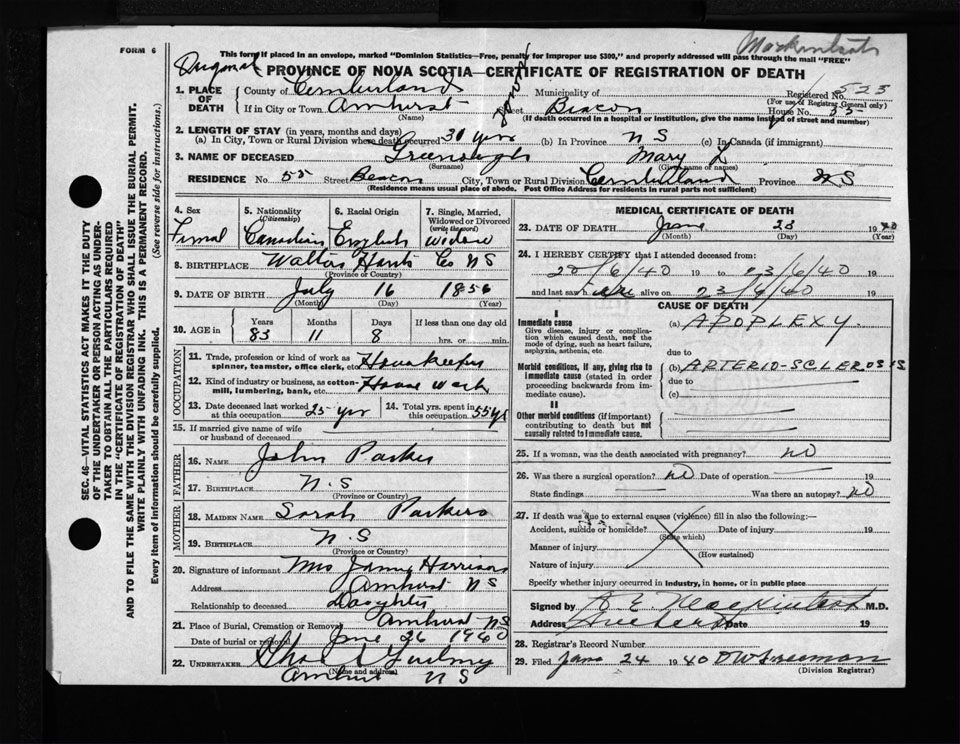 FORM 6
This form if placed in an envelope, marked "Dominion Statistics—Free, penalty for improper use $300," and properly addressed will pass through the mail "FREE"
PROVINCE OF NOVA SCOTIA—CERTIFICATE OF REGISTRATION OF DEATH
1. PLACE OF DEATH County of Cumberland Municipality of Registered No. 523
(For use of Registrar General only)
If in City or Town Amherst Street Beacon House No. 55
(Name) (If death occurred in a hospital or institution, give the name instead of street and number)
2. LENGTH OF STAY (in years, months and days)
(a) In City, Town or Rural Division where death occurred 30 yrs (b) In Province N S (c) In Canada (if immigrant)
3. NAME OF DECEASED Greenough Mary L
(Surname) (Given name or names)
RESIDENCE No. 55 Street Beacon City, Town or Rural Division Cumberland Province N S
(Residence means usual place of abode. Post Office Address for residents in rural parts not sufficient)
4. Sex Femal
5. Nationality (Citizenship) Canadian
6. Racial Origin English
7. Single, Married, Widowed or Divorced (write the word) Widow
8. BIRTHPLACE Walton Hants Co NS
(Province or Country)
9. DATE OF BIRTH July 16 1856
(Month) (Day) (Year)
10. AGE in Years 83 Months 11 Days 8 If less than one day old
hrs. or min.
OCCUPATION
11. Trade, profession or kind of work as spinner, teamster, office clerk, etc. Housekeeper
12. Kind of industry or business, as cotton-mill, lumbering, bank, etc. House Work
13. Date deceased last worked at this occupation 25 yrs 14. Total yrs. spent in this occupation 55 yr
15. If married give name of wife or husband of deceased
FATHER
16. Name John Parker
17. Birthplace N.S
(Province or Country)
MOTHER
18. Maiden Name Sarah Parkers
19. Birthplace N.S
(Province or Country)
20. Signature of informant Mrs Harrison
Address Amherst NS
Relationship to deceased Daughter
21. Place of Burial, Cremation or Removal Amherst NS
Date of burial or removal June 26 1940
22. Undertaker
(Name and address)
Amherst N S
MEDICAL CERTIFICATE OF DEATH
23. DATE OF DEATH June 23 1940
(Month) (Day) (Year)
24. I HEREBY CERTIFY that I attended deceased from:
20/6/40 19 to 23/6/40 19
and last saw h alive on 23/6/40 19
CAUSE OF DEATH
I
Immediate cause
Give disease, injury or complication which caused death, not the mode of dying, such as heart failure, asphyxia, asthenia, etc.
(a) APOPLEXY
due to
Morbid conditions, if any, giving rise to immediate cause (stated in order proceeding backwards from immediate cause).
(b) ARTERIO-SCLEROSIS
due to
(c)
II
Other morbid conditions (if important) contributing to death but not causally related to immediate cause.
25. If a woman, was the death associated with pregnancy? NO
26. Was there a surgical operation? NO Date of operation 19
State findings Was there an autopsy? NO
27. If death was due to external causes (violence) fill in also the following:—
Accident, suicide or homicide? Date of injury 19
(State which)
Manner of injury
(How sustained)
Nature of injury
Specify whether injury occurred in industry, in home, or in public place
Signed by M.D.
Address Amherst Date 19
28. Registrar's Record Number
29. Filed June 24 1940
(Division Registrar)
SEC. 46—VITAL STATISTICS ACT MAKES IT THE DUTY
OF THE UNDERTAKER OR PERSON ACTING AS UNDER-
TAKER TO OBTAIN ALL THE PARTICULARS REQUIRED
IN THE "CERTIFICATE OF REGISTRATION OF DEATH"
AND TO FILE THE SAME WITH THE DIVISION REGISTRAR WHO SHALL ISSUE THE BURIAL PERMIT.
WRITE PLAINLY WITH UNFADING INK. THIS IS A PERMANENT RECORD.
Every item of Information should be carefully supplied. (See reverse side for instructions.)